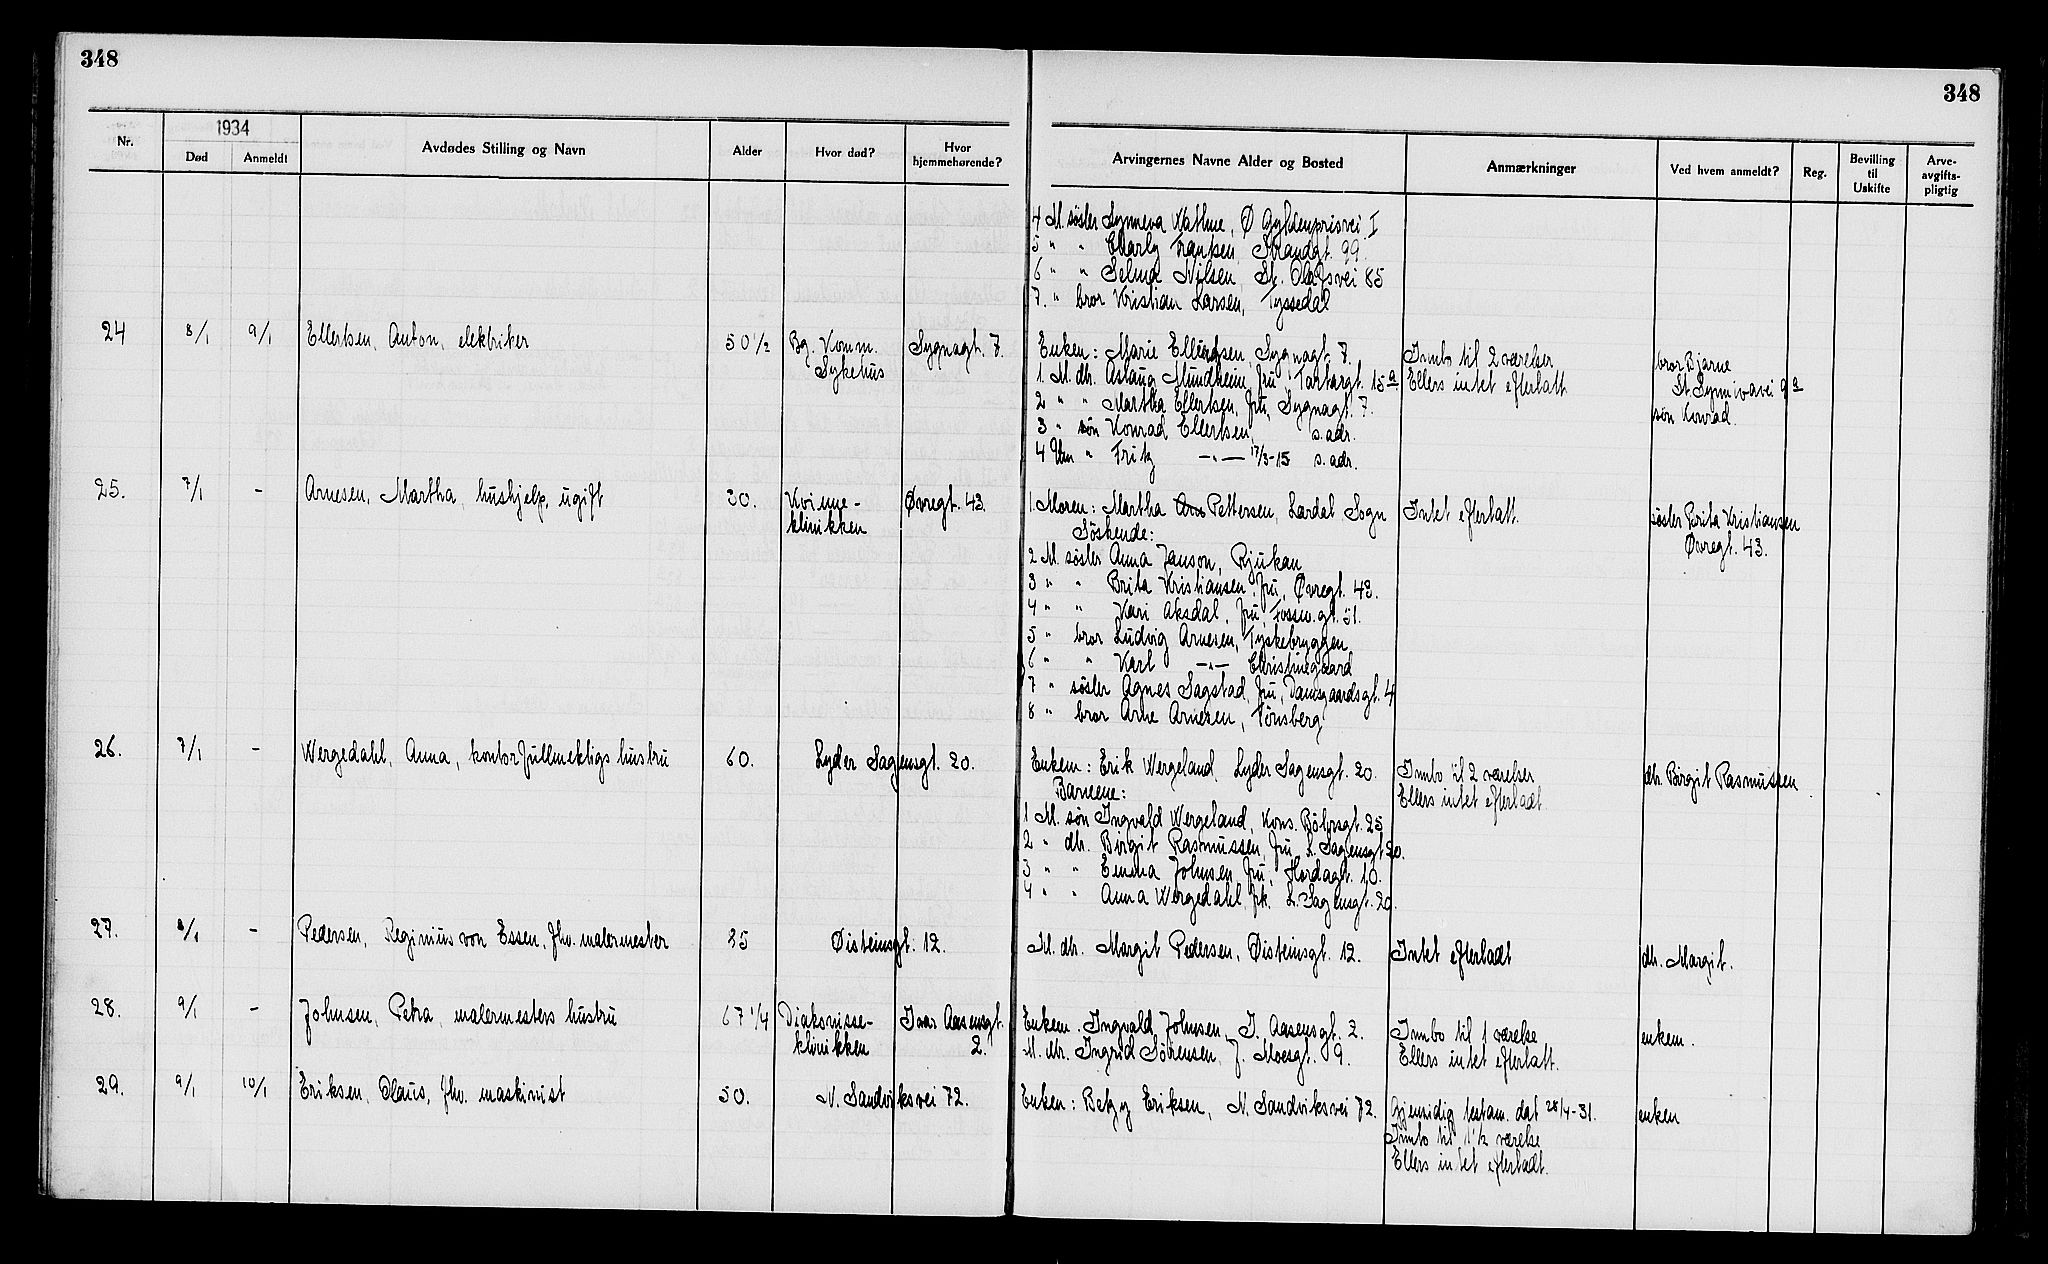 348
348
Nr.
1934
Død
Anmeldt
Avdødes Stilling og Navn
Alder
Hvor død?
Hvor hjemmehørende?
Arvingernes Navne Alder og Bosted
Anmærkninger
Ved hvem anmeldt?
Reg.
Bevilling til Uskifte
Arve-avgifts-pligtig
4 M. søster Synneva Kathue, Ø Gyldenprisvei I
5 " " Charly Frantsen, Strandgt. 99.
6 " " Selma Nilsen, St. Olafsvei 85
7. " bror Kristian Larsen, Tyssedal
24 8/1 9/1 Ellertsen, Anton, elektriker 50 1/2 Bg. Komm. Sygnagt. 7. Enken: Marie Ellertsen, Sygnagt. 7. Innbo til 2 værelser bror Bjarne
Sykehus 1. M. dtr. Aslaug Mundheim, fru, Tartargt. 15a Ellers intet efterlatt St. Synnivavei 9a
2 " " Martha Ellertsen, fru, Sygnagt. 7. søn Konrad.
3 " søn Konrad Ellertsen, s. adr.
4 Um " Fritz -"- 17/3-15 s. adr.
25. 7/1 - Arnesen, Martha, hushjelp, ugift 30. Kvinne- Øvregt. 43. 1. Moren: Martha Pettersen, Lærdal, Sogn Intet efterlatt. søster Brita Kristiansen
klinikken Søskende: Øvregt. 43.
2 M. søster Anna Janson, Rjukan
3 " " Brita Kristiansen, fru, Øvregt. 43.
4 " " Kari Aksdal, fru, Fossw.gt. 51.
5 " bror Ludvig Arnesen, Tyskebryggen
6 " " Karl -"- Christinegaard
7 " søster Agnes Sagstad, fru, Damsgaardsgt. 4
8 " bror Arne Arnesen, Tønsberg
26. 7/1 - Wergedahl, Anna, kontorfullmektigs hustru 60. Lyder Sagensgt. 20. Enkem: Erik Wergeland, Lyder Sagensgt. 20. Innbo til 2 værelser dtr. Birgit Rasmussen
Barnene: Ellers intet efterladt
1 M. søn Ingvald Wergeland, Kons. Børsgt. 25
2 " dtr. Birgit Rasmussen, fru, L. Sagensgt 20.
3 " " Emma Johnsen, fru, Hordagt. 10.
4 " " Anna Wergedahl, frk. L. Sagensgt. 20.
27. 8/1 - Pedersen, Reginius von Essen, fhv. malermester 85 Øisteinsgt. 12. M. dtr. Margit Pedersen, Øisteinsgt. 12. Intet efterladt dtr. Margit.
28. 9/1 - Johnsen, Petra, malermesters hustru 67 1/4 Diakonisse- Ivar Aasensgt. Enkem. Ingvald Johnsen, I. Aasensgt. 2. Innbo til 1 værelse enkem.
klinikken 2. M. dtr. Ingrid Sørensen, J. Moesgt. 9. Ellers intet efterlatt.
29. 9/1 10/1 Eriksen, Olaus, fhv. maskinist 50. N. Sandviksvei 72. Enken: Betzy Eriksen, N. Sandviksvei 72. Gjensidig testam. dat 28/4-31. enken
Innbo til 1 1/2 værelse
Ellers intet efterladt.